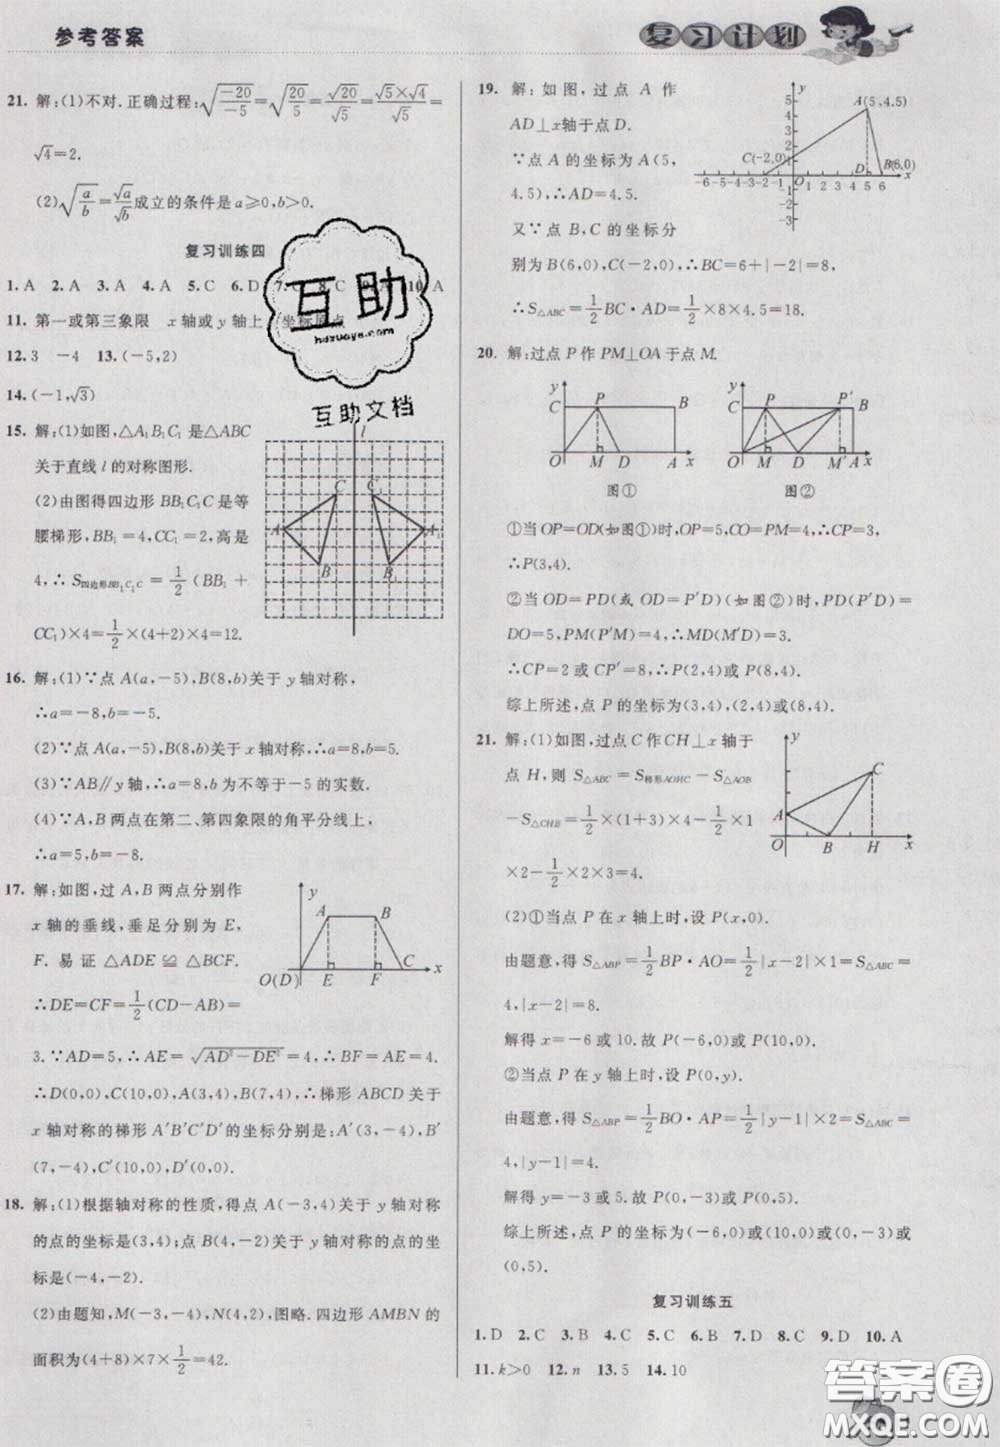 参考答案
复习计划
21. 解:(1)不对.正确过程:√(-20/-5)=√(20/5)=√20/√5=√(5×4)/√5=
√4=2.
(2)√(a/b)=√a/√b成立的条件是a≥0,b>0.
复习训练四
1.A 2.A 3.A 4.A 5.C 6.D 7.C 8.C 10.A
11. 第一或第三象限 x轴或y轴上 坐标原点
12.3 -4 13.(-5,2)
14.(-1,√3)
15. 解:(1)如图,△A₁B₁C₁是△ABC
关于直线l的对称图形.
(2)由图得四边形BB₁C₁C是等
腰梯形,BB₁=4,CC₁=2,高是
4,∴S四边形BB₁C₁C=1/2(BB₁+
CC₁)×4=1/2×(4+2)×4=12.
l
C C₁
A A₁
B B₁
16. 解:(1)∵点A(a,-5),B(8,b)关于y轴对称,
∴a=-8,b=-5.
(2)∵点A(a,-5),B(8,b)关于x轴对称,∴a=8,b=5.
(3)∵AB∥y轴,∴a=8,b为不等于-5的实数.
(4)∵A,B两点在第二、第四象限的角平分线上,
∴a=5,b=-8.
17. 解:如图,过A,B两点分别作
x轴的垂线,垂足分别为E,
F.易证△ADE≌△BCF.
∴DE=CF=1/2(CD-AB)=
3.∵AD=5,∴AE=√(AD²-DE²)=4,∴BF=AE=4.
∴D(0,0),C(10,0),A(3,4),B(7,4),∴梯形ABCD关于
x轴对称的梯形A′B′C′D′的坐标分别是:A′(3,-4),B′
(7,-4),C′(10,0),D′(0,0).
y
A B
O(D) E F C x
18. 解:(1)根据轴对称的性质,得点A(-3,4)关于y轴对称
的点的坐标是(3,4);点B(4,-2)关于y轴对称的点的坐
标是(-4,-2).
(2)由题知,M(-3,-4),N(4,2),图略.四边形AMBN的
面积为(4+8)×7×1/2=42.
19. 解:如图,过点A作
AD⊥x轴于点D.
∵点A的坐标为A(5,
4.5),∴AD=4.5.
又∵点B,C的坐标分
别为B(6,0),C(-2,0),∴BC=6+|-2|=8,
∴S△ABC=1/2BC·AD=1/2×8×4.5=18.
y
5
4
3
2
1
A(5,4.5)
C(-2,0)
D B(6,0)
-6-5-4-3-2-1 O 1 2 3 4 5 6 x
-1
-2
-3
20. 解:过点P作PM⊥OA于点M.
y
C P B
O M D A x
图①
y
C P P′ B
O M D M′ A x
图②
①当OP=OD(如图①)时,OP=5,CO=PM=4,∴CP=3,
∴P(3,4).
②当OD=PD(或OD=P′D)(如图②)时,PD(P′D)=
DO=5,PM(P′M)=4,∴MD(M′D)=3.
∴CP=2或CP′=8,∴P(2,4)或P(8,4).
综上所述,点P的坐标为(3,4),(2,4)或(8,4).
21. 解:(1)如图,过点C作CH⊥x轴于
点H,则S△ABC=S梯形AOHC-S△AOB
-S△CHB=1/2×(1+3)×4-1/2×1
×2-1/2×2×3=4.
y
C
A
O B H x
(2)①当点P在x轴上时,设P(x,0).
由题意,得S△ABP=1/2BP·AO=1/2|x-2|×1=S△ABC=
4,|x-2|=8.
解得x=-6或10.故P(-6,0)或P(10,0).
②当点P在y轴上时,设P(0,y).
由题意,得S△ABP=1/2BO·AP=1/2|y-1|×2=S△ABC=
4,|y-1|=4.
解得y=-3或5.故P(0,-3)或P(0,5).
综上所述,点P的坐标为(-6,0)或(10,0)或(0,-3)或
(0,5).
复习训练五
1.D 2.C 3.B 4.C 5.C 6.B 7.D 8.C 9.D 10.A
11.k>0 12.n 13.5 14.10
互助
huzuoye.com
互助文档
答案圈
MXQE.COM